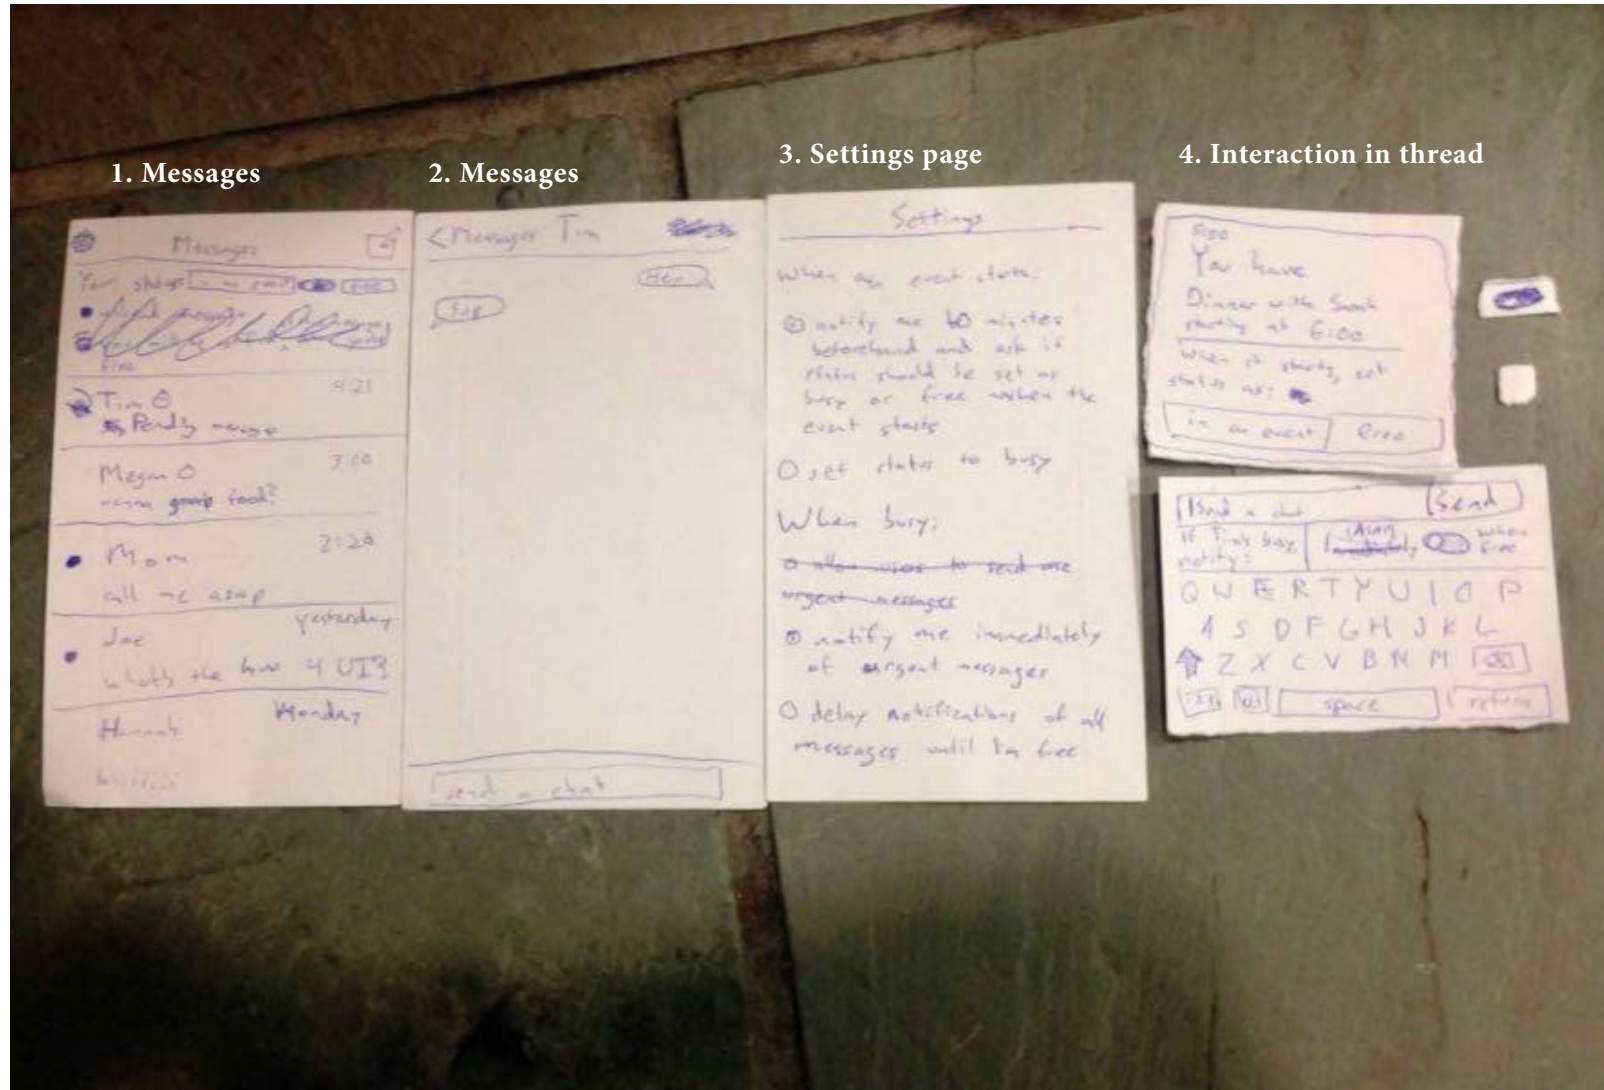 1. Messages
Messages
Your status: in an event free
free
Tim 4:21
Pending message
Megan 3:00
wanna food?
Mom 2:20
call me asap
Joe yesterday
what's the hw 4 UI?
Hannah Monday
2. Messages
< Messages Tim
Hey
Sup
send a chat
3. Settings page
Settings
When an event starts:
notify me 10 minutes
beforehand and ask if
status should be set as
busy or free when the
event starts
set status to busy
When busy:
allow users to send me
urgent messages
notify me immediately
of urgent messages
delay notifications of all
messages until I'm free
4. Interaction in thread
You have
Dinner with Sarah
starting at 6:00
When it starts, set
status as:
in an event free
Send a chat Send
If Tim's busy, ASAP when
notify: immediately free
Q W E R T Y U I O P
A S D F G H J K L
Z X C V B N M
space return